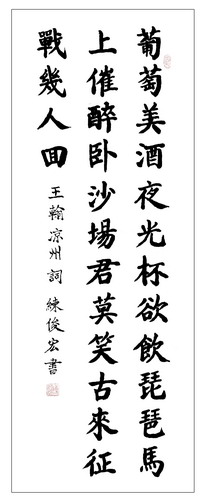 葡萄美酒夜光杯欲飲琵琶馬
上催醉卧沙場君莫笑古來征
戰幾人回
王翰凉州詞 練俊宏書